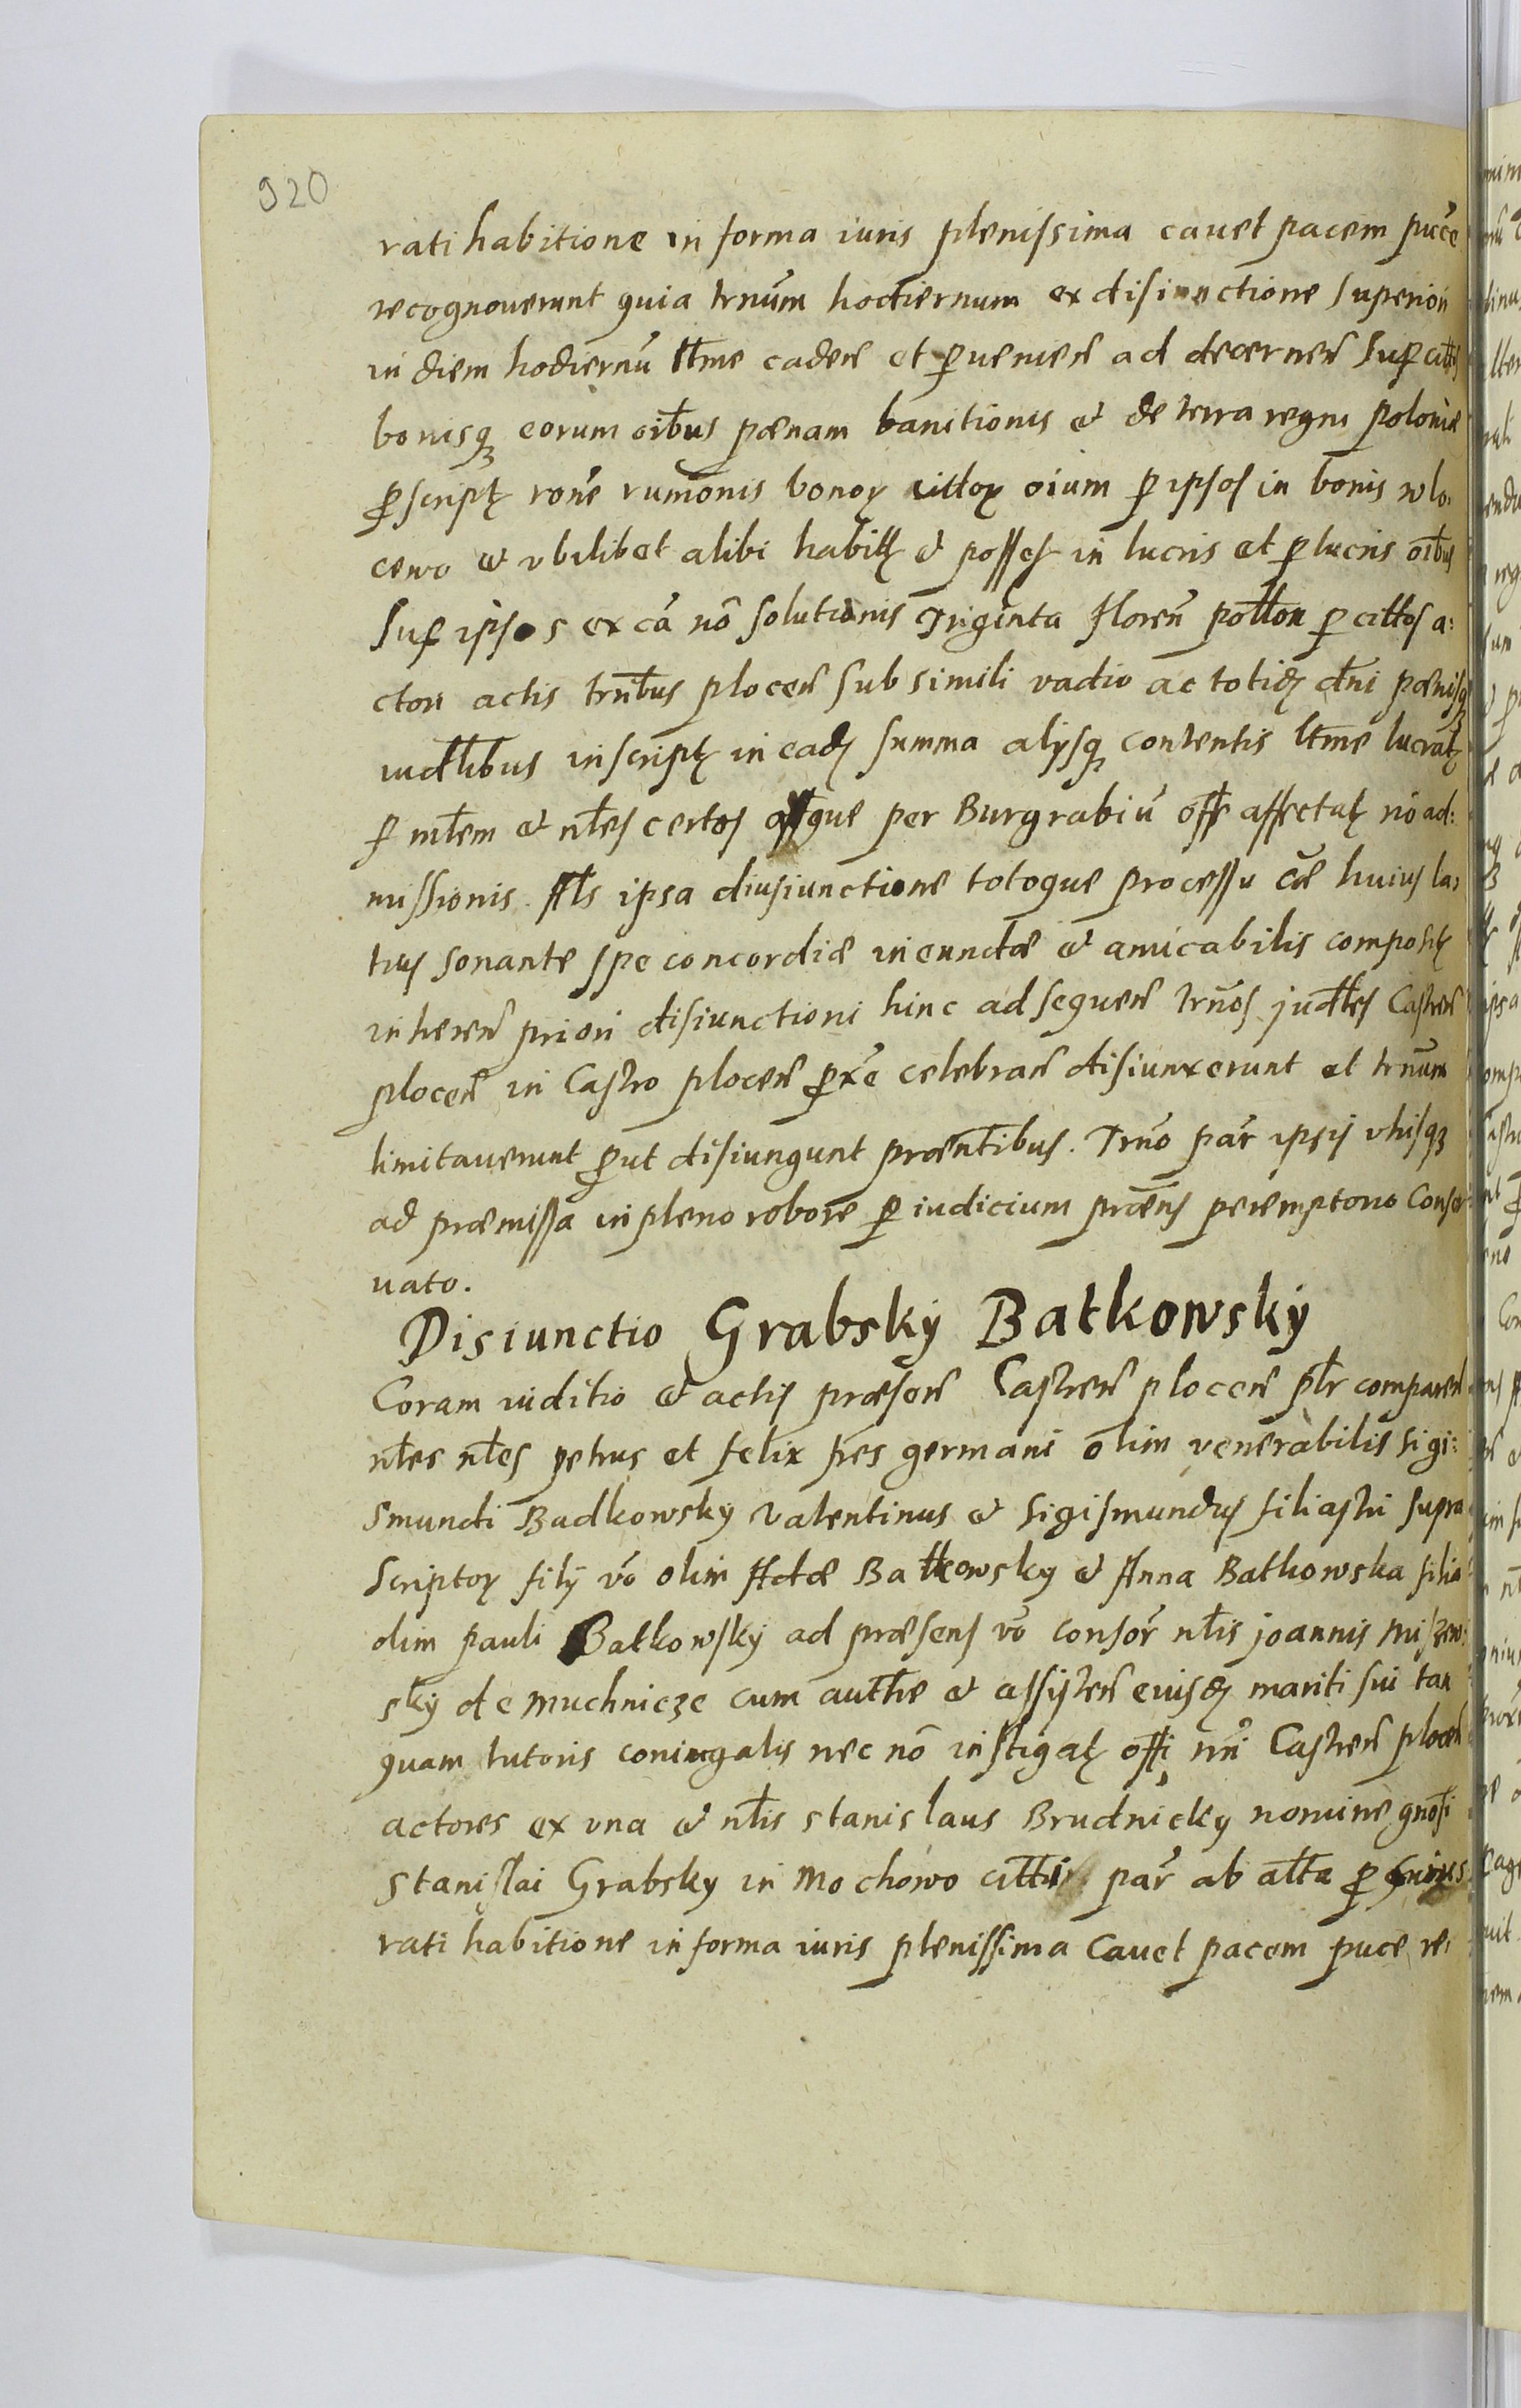 920
rati habitione in forma iuris plenissima cauet pacem puce
recognouerunt quia trnum hodiernum ex disiunctione superiori
in diem hodiernu ltme caden et peruenien ad decernen super cittis
bonisq eorum oibus pœnam banitionis et de terra regni poloniæ
proscript rone rumonis bonor cittor oium per ipsos in bonis
cewo et vbilibet alibi habitt et posses in lucris et per lucris oibus
super ipsos ex ca no solutionis Triginta floren pollon per cittos a:
ctori actis trribus plocen sub simili vadio ac totid dni pœnisq
iudtlibus inscript in ead summa alijsq contentis ltme lucrat
p mtem et ntes certos atque per Burgrabiu offe affectat no ad:
missionis. als ipsa diusiunctione totoque processu cæ huius la:
tius sonante spe concordiæ ineundæ et amicabilis composit
inheren priori disiunctioni hinc ad sequen trnos judtles Castren
plocen in Castro plocen proxe celebran disiunxerunt et trnum
limitauerunt prout disiungunt præntibus. Trno par ipsis vtrisq
ad præmissa in pleno robore per iudicium præns peremptorio Conser
uato.
Disiunctio Grabsky Batkowsky
Coram iuditio et actis præsen Castren plocen pltr comparen
ntes ntes petrus et felix fres germani olim venerabilis Sigi:
smundi Badkowsky Valentinus et Sigismundus filiastri supra
scriptor filij vo olim Adæ Batkowsky et Anna Batkowska filia
olim pauli Batkowsky ad præsens vo consor ntlis joannis Miszew:
sky de Muchnicze cum authe et assisten eiusd mariti sui tan
quam tutoris coniugalis nec no instigat offi nri Castren plocen
actores ex una et ntlis stanislaus Brudnicky nomine gnosi
stanislai Grabsky in Mochowo citti par ab alta pro cuius
rati habitione in forma iuris plenissima Cauet pacem puce re: